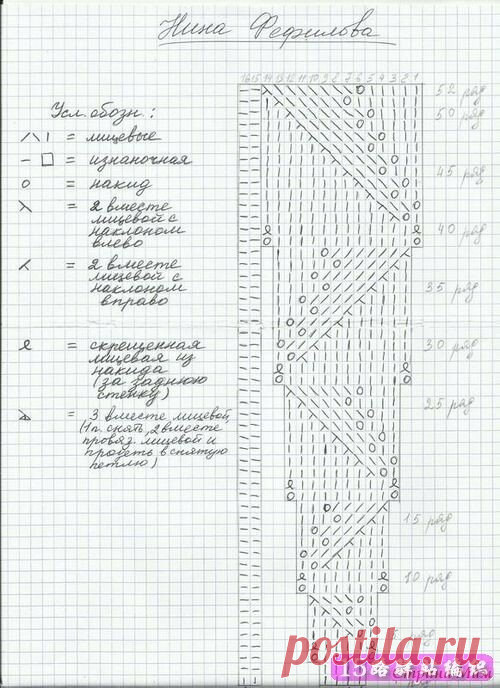 Нина Фефилова
16 15 14 13 12 11 10 9 8 7 6 5 4 3 2 1
Усл. обозн:
/ \ | = лицевые
– □ = изнаночная
о = накид
= 2 вместе
лицевой с
наклоном
влево
= 2 вместе
лицевой с
наклоном
вправо
= скрещенная
лицевая из
накида
(за заднюю
стенку)
= 3 вместе лицевой,
(1 п. снять, 2 вместе
провяз. лицевой и
продеть в снятую
петлю)
52 ряд
50 ряд
45 ряд
40 ряд
35 ряд
30 ряд
25 ряд
15 ряд
10 ряд
ряд
postila.ru
Страна Мам